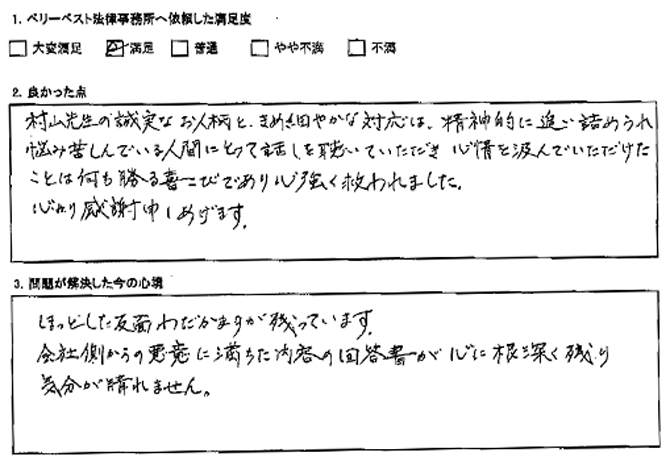 1. ベリーベスト法律事務所へ依頼した満足度
□ 大変満足 ☑ 満足 □ 普通 □ やや不満 □ 不満
2. 良かった点
村山先生の誠実なお人柄と、きめ細やかな対応は、精神的に追い詰められ
悩み苦しんでいる人間にとって話しを聴いていただき心情を汲んでいただけた
ことは何も勝る喜こびであり心強く救われました。
心より感謝申しあげます。
3. 問題が解決した今の心境
ほっとした反面わだかまりが残っています。
会社側からの悪意に満ちた内容の回答書が心に根深く残り
気分が晴れません。